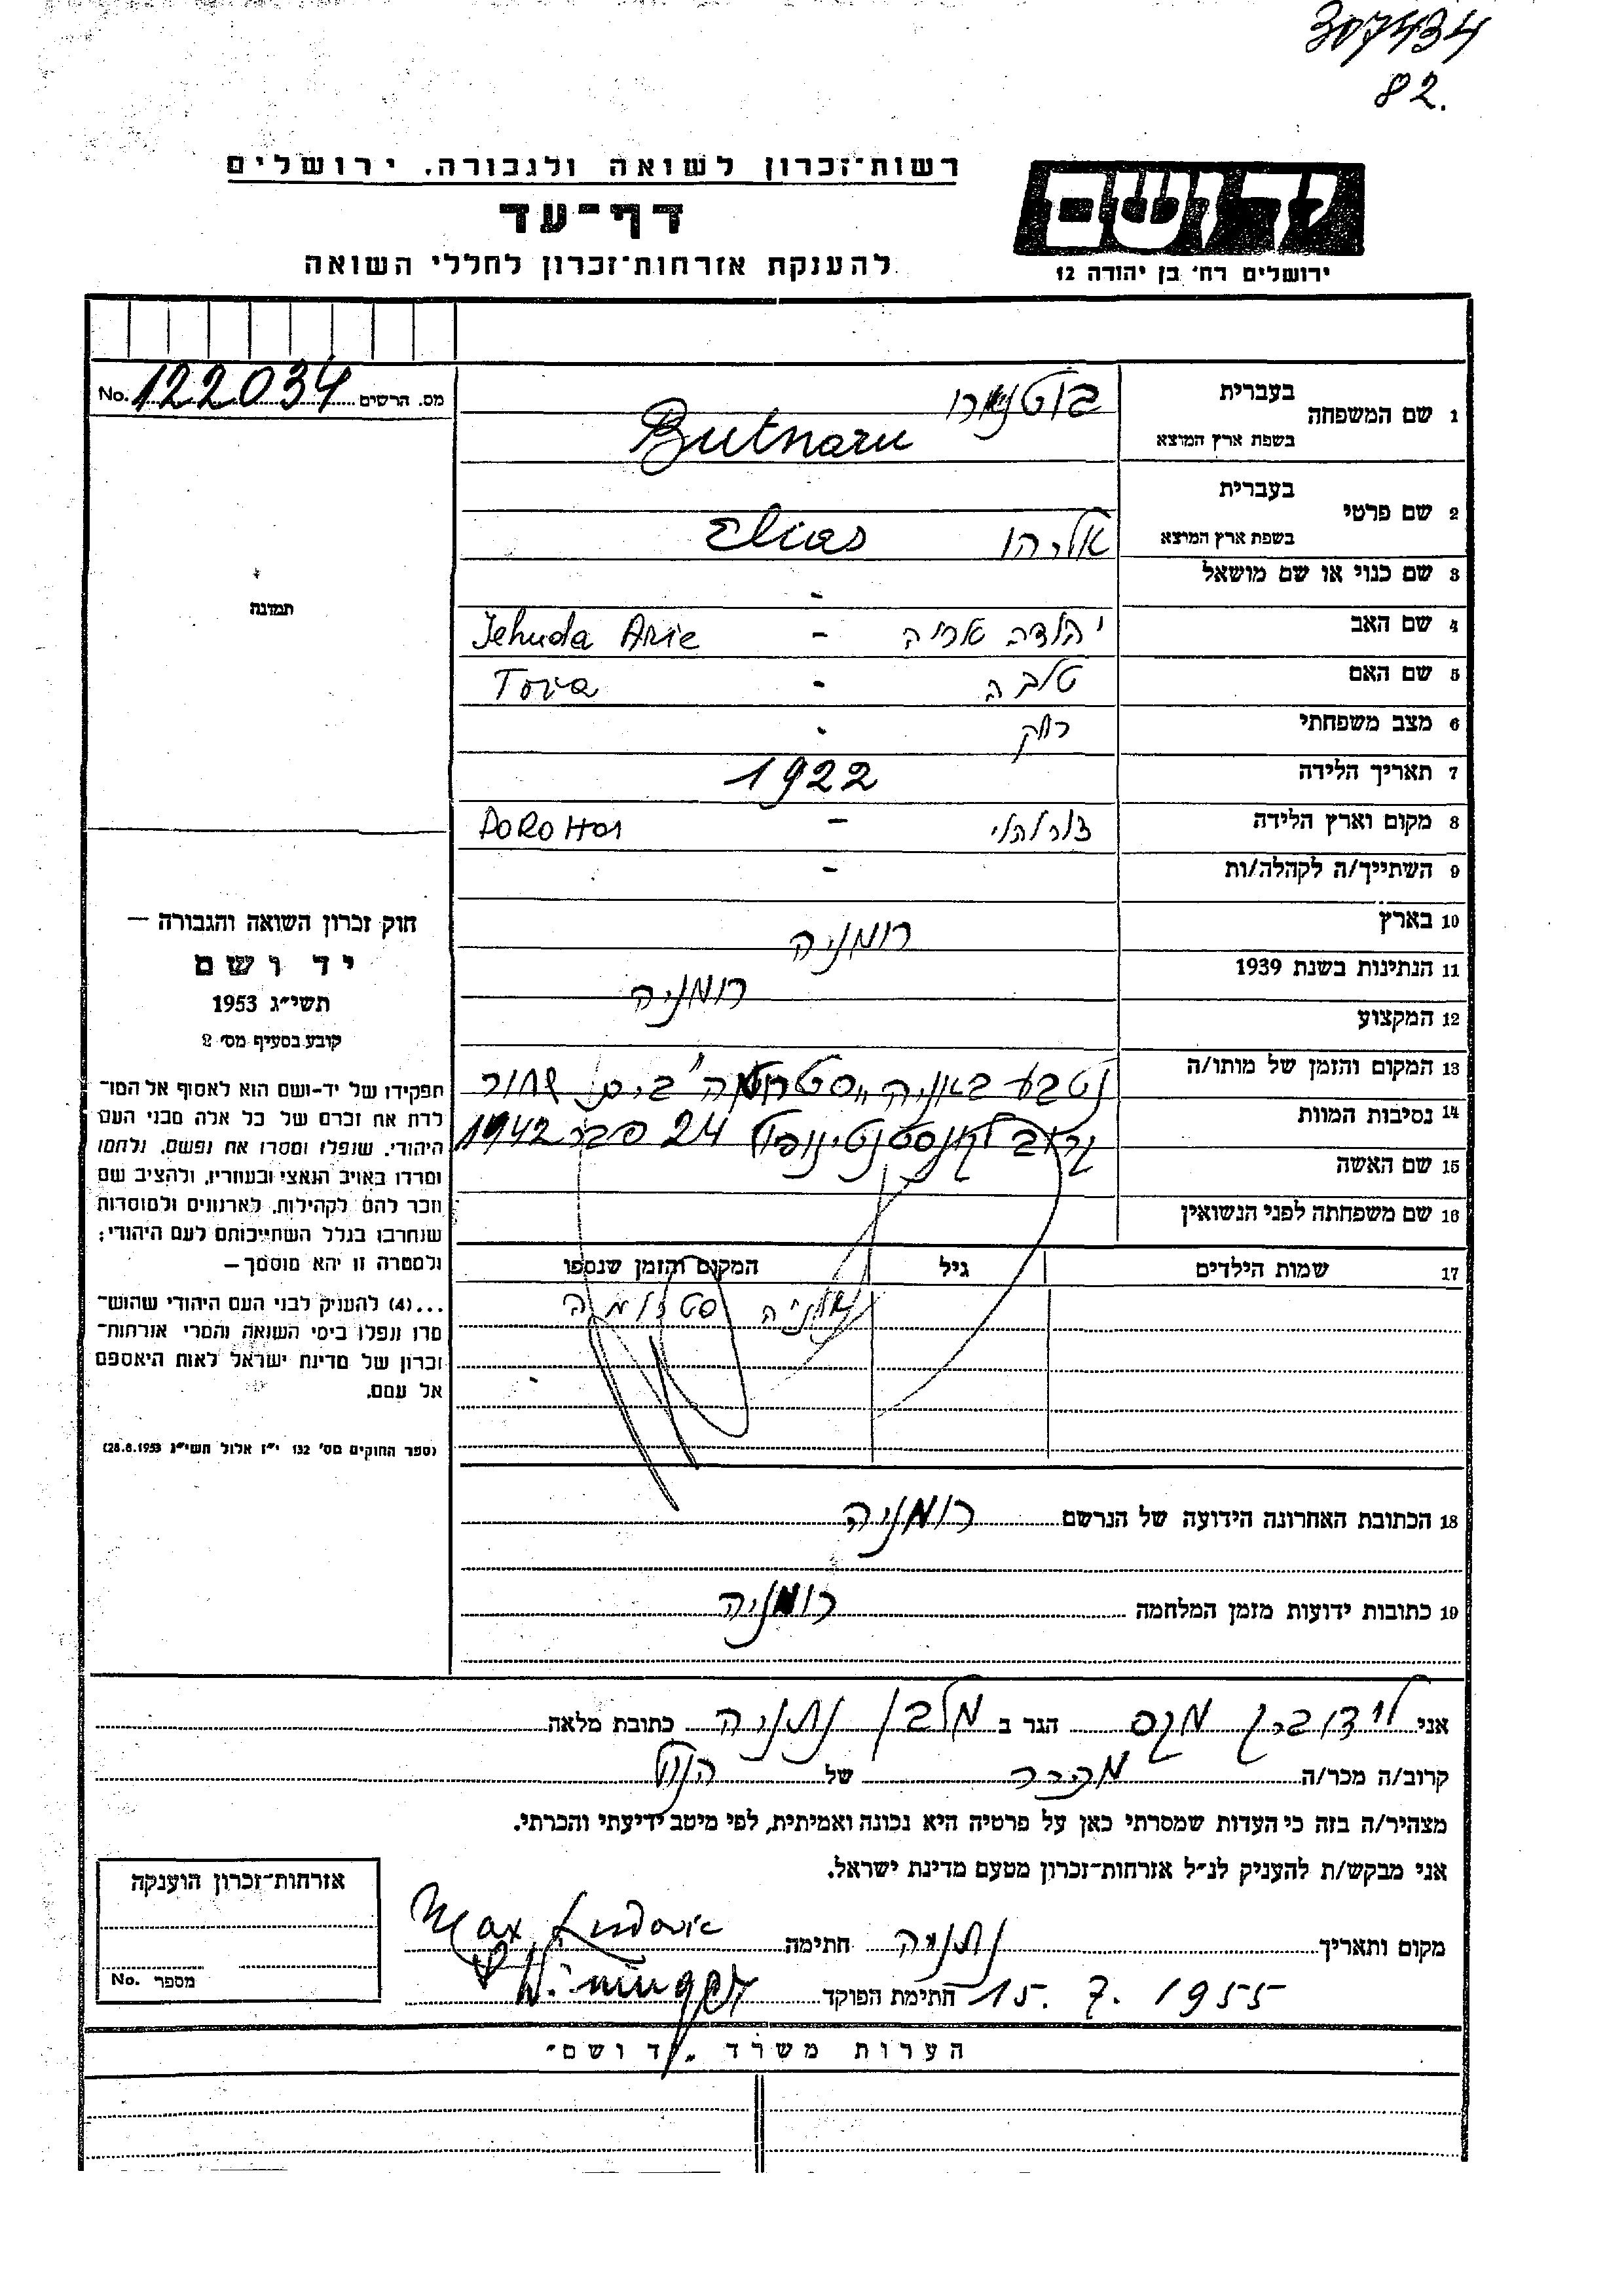 307434
82.
רשות־זכרון לשואה ולגבורה. ירושלים
דף־עד
להענקת אזרחות־זכרון לחללי השואה
יד ושם
ירושלים רח׳ בן יהודה 12
מס. הרשים No. 122034
1 שם המשפחה בעברית בוטנארו
בשפת ארץ המוצא Butnaru
2 שם פרטי בעברית
בשפת ארץ המוצא אליהו Elias
3 שם כנוי או שם מושאל -
4 שם האב יהודה אריה - Jehuda Arie
5 שם האם טובה - Tova
6 מצב משפחתי רווק
7 תאריך הלידה 1922
8 מקום וארץ הלידה דורוהוי - DOROHOI
9 השתייך/ה לקהלה/ות -
10 בארץ רומניה
11 הנתינות בשנת 1939 רומניה
12 המקצוע
13 המקום והזמן של מותו/ה נטבע באניה "סטרומה" בים שחור
14 נסיבות המוות קרוב לקונסטנטינופול 24 פבר 1942
15 שם האשה
16 שם משפחתה לפני הנשואין
17 שמות הילדים גיל המקום והזמן שנספו
אוניה סטרומה
18 הכתובת האחרונה הידועה של הנרשם רומניה
19 כתובות ידועות מזמן המלחמה רומניה
תמונה
חוק זכרון השואה והגבורה –
יד ושם
תשי״ג 1953
קובע בסעיף מס׳ 2
תפקידו של יד-ושם הוא לאסוף אל המו־
לדת את זכרם של כל אלה מבני העם
היהודי, שנפלו ומסרו את נפשם, נלחמו
ומרדו באויב הנאצי ובעוזריו, ולהציב שם
וזכר להם לקהילות, לארגונים ולמוסדות
שנחרבו בגלל השתייכותם לעם היהודי;
ולמטרה זו יהא מוסמך –
...(4) להעניק לבני העם היהודי שהוש־
מדו ונפלו בימי השואה והמרי אזרחות־
זכרון של מדינת ישראל לאות היאספם
אל עמם.
(ספר החוקים מס׳ 132 י״ז אלול תשי״ג 28.8.1953)
אני לודוביק מקס הגר ב מלבן נתניה כתובת מלאה
קרוב/ה מכר/ה מכר של הנ"ל
מצהיר/ה בזה כי העדות שמסרתי כאן על פרטיה היא נכונה ואמיתית, לפי מיטב ידיעתי והכרתי.
אני מבקש/ת להעניק לנ״ל אזרחות־זכרון מטעם מדינת ישראל.
מקום ותאריך נתניה חתימה Max Ludovic
15. 7. 1955 חתימת הפוקד
אזרחות־זכרון הוענקה
מספר No.
הערות משרד „יד ושם״